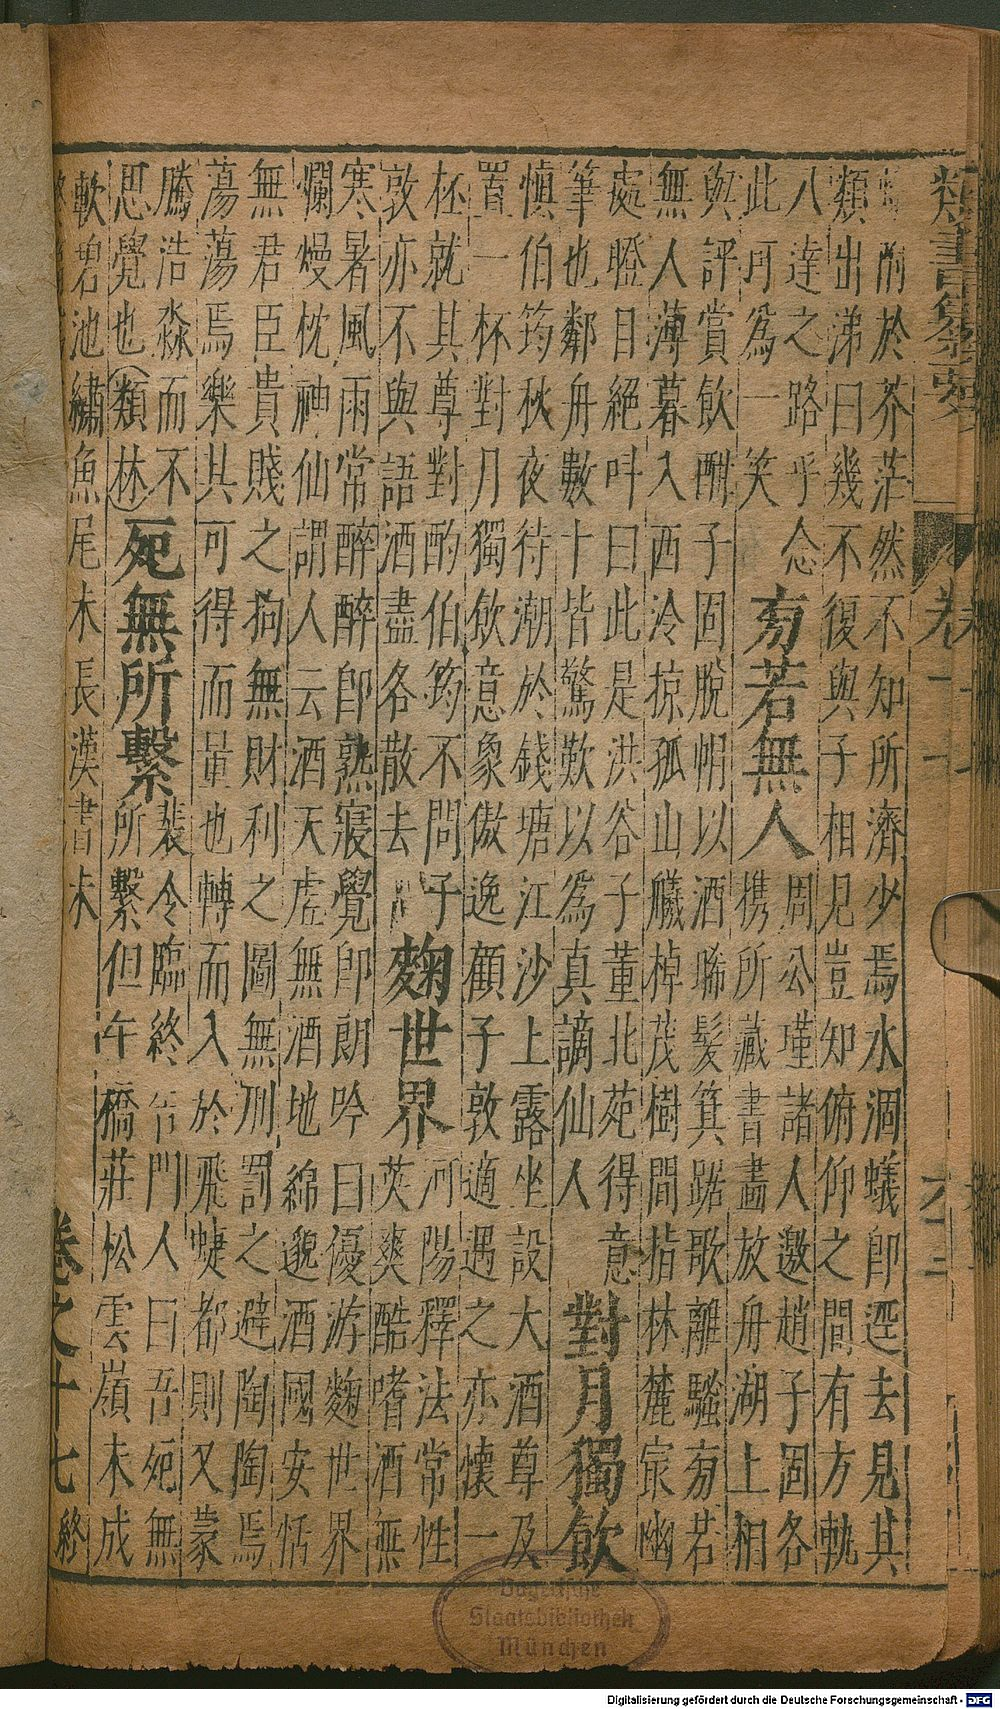 於芥茫然不知所濟少焉水涸蟻卽逕去見其
類出涕曰幾不復與子相見豈知俯仰之間有方軌
八達之路乎念
此可爲一笑
旁若無人
周公瑾諸人邀趙子固各
携所藏書畫放舟湖上相
與評賞飲酣子固脫帽以酒晞髮箕踞歌離騷旁若
無人薄暮入西泠掠孤山艤棹茂樹間指林麓㝡幽
處瞪目絕叫曰此是洪谷子董北苑得意
筆也鄰舟數十皆驚歎以爲真謫仙人
對月獨飲
慎伯筠秋夜待潮於錢塘江沙上露坐設大酒尊及
置一杯對月獨飲意象傲逸顧子敦適遇之亦懷一
杯就其尊對酌伯筠不問子
敦亦不與語酒盡各散去
麴世界
河陽釋法常性
英爽酷嗜酒無
寒暑風雨常醉醉卽熟寢覺卽朗吟曰優游麴世界
爛熳枕神仙謂人云酒天虛無酒地綿邈酒國安恬
無君臣貴賤之拘無財利之圖無刑罰之避陶陶焉
蕩蕩焉樂其可得而量也轉而入於飛蜨都則又蒙
騰浩淼而不
思覺也類林
死無所繫
裴令臨終告門人曰吾死無
所繫但午橋莊松雲嶺未成
軟碧池繡魚尾未長漢書未
卷之十七終
Bayerische
Staatsbibliothek
München
Digitalisierung gefördert durch die Deutsche Forschungsgemeinschaft - DFG